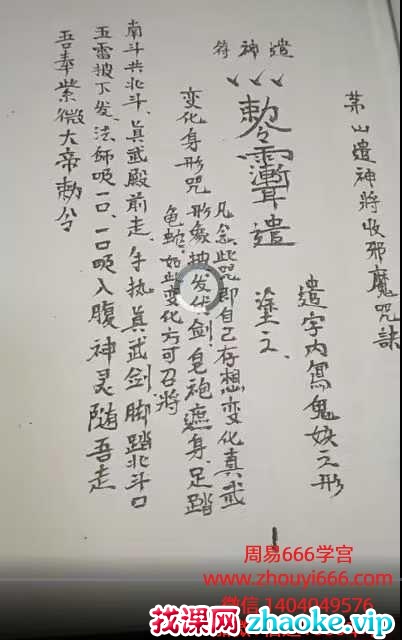 茅山遣神將收邪魔咒訣
遣字内寫鬼妖之形
遣神符
勅令
遣
塗之、
变化身形咒
凡念此咒即自己存想变化真武
形象披发仗剑、皂袍遮身、足踏
龟蛇、如此变化方可召將
南斗共北斗、真武殿前走、手执真武剑脚踏北斗口
五雷披下发、法師吸一口、一口吸入腹神灵随吾走
吾奉紫微大帝勅令
周易666学宫
www.zhouyi666.com
微信 1404049576
找课网zhaoke.vip